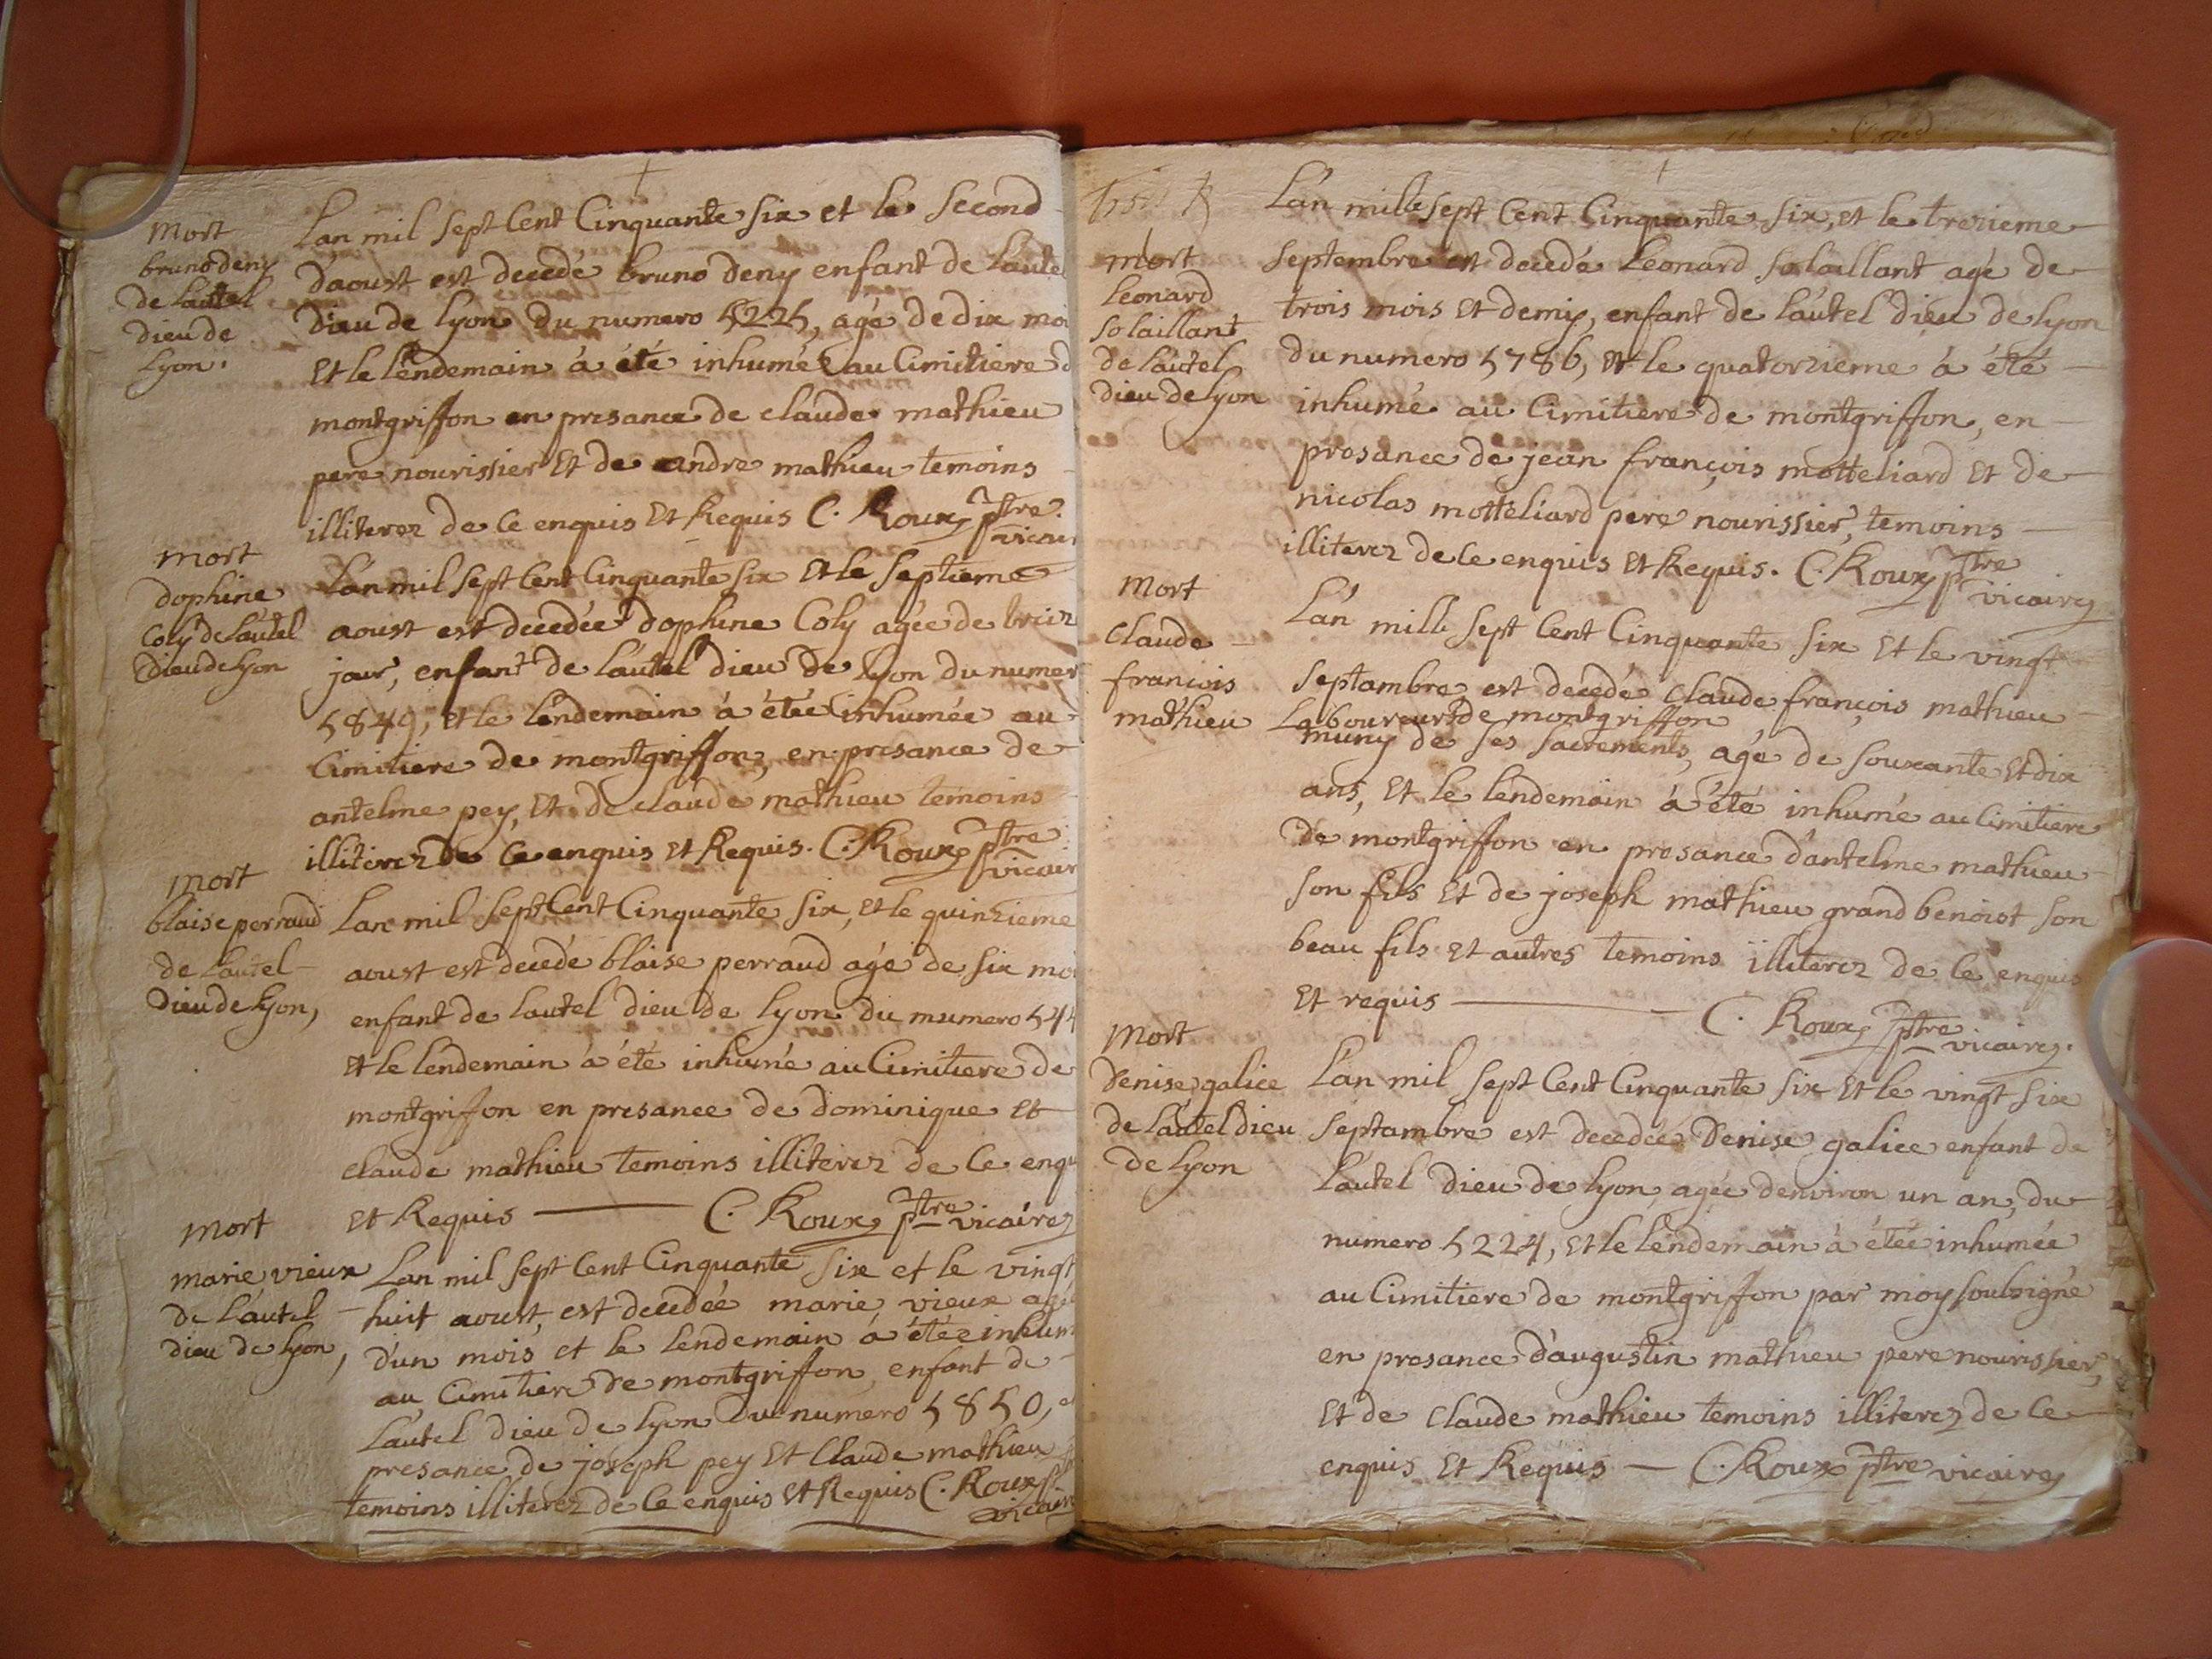 mort
bruno deny
de lautel
dieu de
lyon.
Lan mil sept Cent Cinquante six et le second
daoust est decedé bruno deny enfant de lautel
dieu de lyon du numero 5225, agé de dix moi
Et le lendemain à été inhumé au Cimitiere d
montgriffon en presance de claude mathieu
pere nourissier Et de andre mathieu temoins
illiterez de Ce enquis Et Requis C. Roux ptre
vicair
mort
dophine
Coly de lautel
dieu de lyon
Lan mil sept Cent Cinquante six Et le septieme
aoust est decedée dophine Coly agée de
jour, enfant de lautel dieu de lyon du numer
5849, et le lendemain à étée inhumée au
Cimitiere de montgriffon, en presance de
antelme pey, Et de claude mathieu temoins
illiterez de Ce enquis Et Requis. C. Roux ptre
vicair
mort
blaise perraud
de lautel
dieu de lyon,
Lan mil sept Cent Cinquante six, et le quinzieme
aoust est decedé blaise perraud agé de six moi
enfant de lautel dieu de lyon du numero 544
et le lendemain à été inhumé au Cimitiere de
montgrifon en presance de dominique et
claude mathieu temoins illiterez de Ce enqu
et Requis C. Roux ptre vicaire
mort
marie vieux
de lautel
dieu de lyon,
Lan mil sept Cent Cinquante six et le vingt
huit aoust, est decedée marie vieux agé
d'un mois et le lendemain à étée inhum
au Cimitiere de montgriffon, enfant de
lautel dieu de lyon du numero 5850,
presance de joseph pey Et Claude mathieu
temoins illiterez de Ce enquis Et Requis C. Roux pt
vicair
mort
Leonard
solaillant
de lautel
dieu de lyon
L'an mille sept Cent Cinquante six, et le trezieme
septembre est decedé Leonard solaillant agé de
trois mois et demiy, enfant de lautel dieu de lyon
du numero 5786, et le quatorzieme à été
inhumé au Cimitiere de montgriffon, en
presance de jean françois motteliard et de
nicolas motteliard pere nourissier, temoins
illiterez de Ce enquis et Requis. C. Roux ptre
vicaire
mort
claude
francois
mathieu
L'an mille sept Cent Cinquante six Et le vingt
septambre est decedé claude françois mathieu
Laboureur de montgriffon
muny de ses sacrements, agé de souxante et dix
ans, Et le lendemain à été inhumé au Cimitiere
de montgriffon en presance d'antelme mathieu
son fils et de joseph mathieu grand benoist son
beau fils et autres temoins illiterez de Ce enquis
et requis C. Roux ptre
vicaire.
mort
denise galice
de lautel dieu
de lyon
L'an mil sept Cent Cinquante six Et le vingt six
septambre est decedée denise galice enfant de
l'autel dieu de lyon, agée d'environ un an, du
numero 5224, et le lendemain à étée inhumée
au Cimitiere de montgriffon par moy soubsigné
en presance d'augustin mathieu pere nourissier,
et de claude mathieu temoins illiterez de Ce
enquis Et Requis C. Roux ptre vicaire